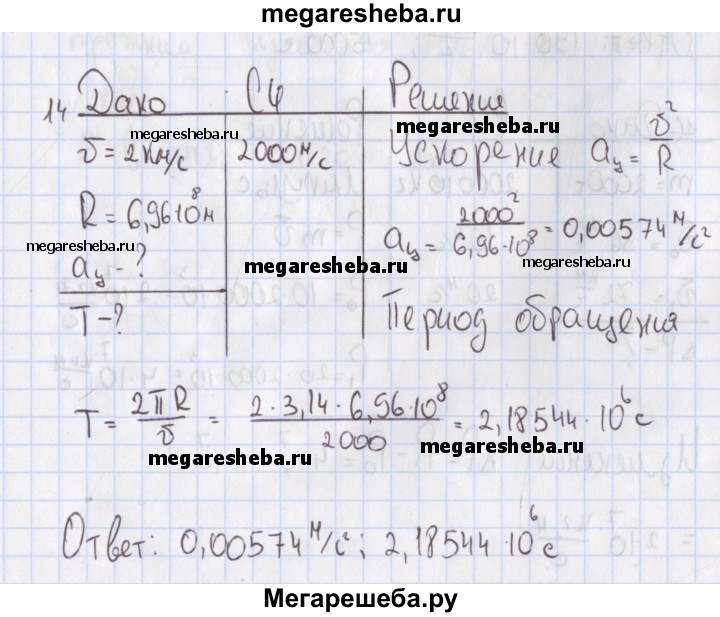 megaresheba.ru
14 Дано СИ Решение
megaresheba.ru megaresheba.ru
υ = 2 км/с 2000 м/с Ускорение aц = υ²/R
R = 6,96·10⁸ м
megaresheba.ru
aц = 2000²/6,96·10⁸ = 0,00574 м/с²
aц - ? megaresheba.ru megaresheba.ru
T - ? Период обращения
T = 2πR/υ = 2·3,14·6,96·10⁸/2000 = 2,18544·10⁶ с
megaresheba.ru megaresheba.ru
Ответ: 0,00574 м/с²; 2,18544·10⁶ с
Мегарешеба.ру